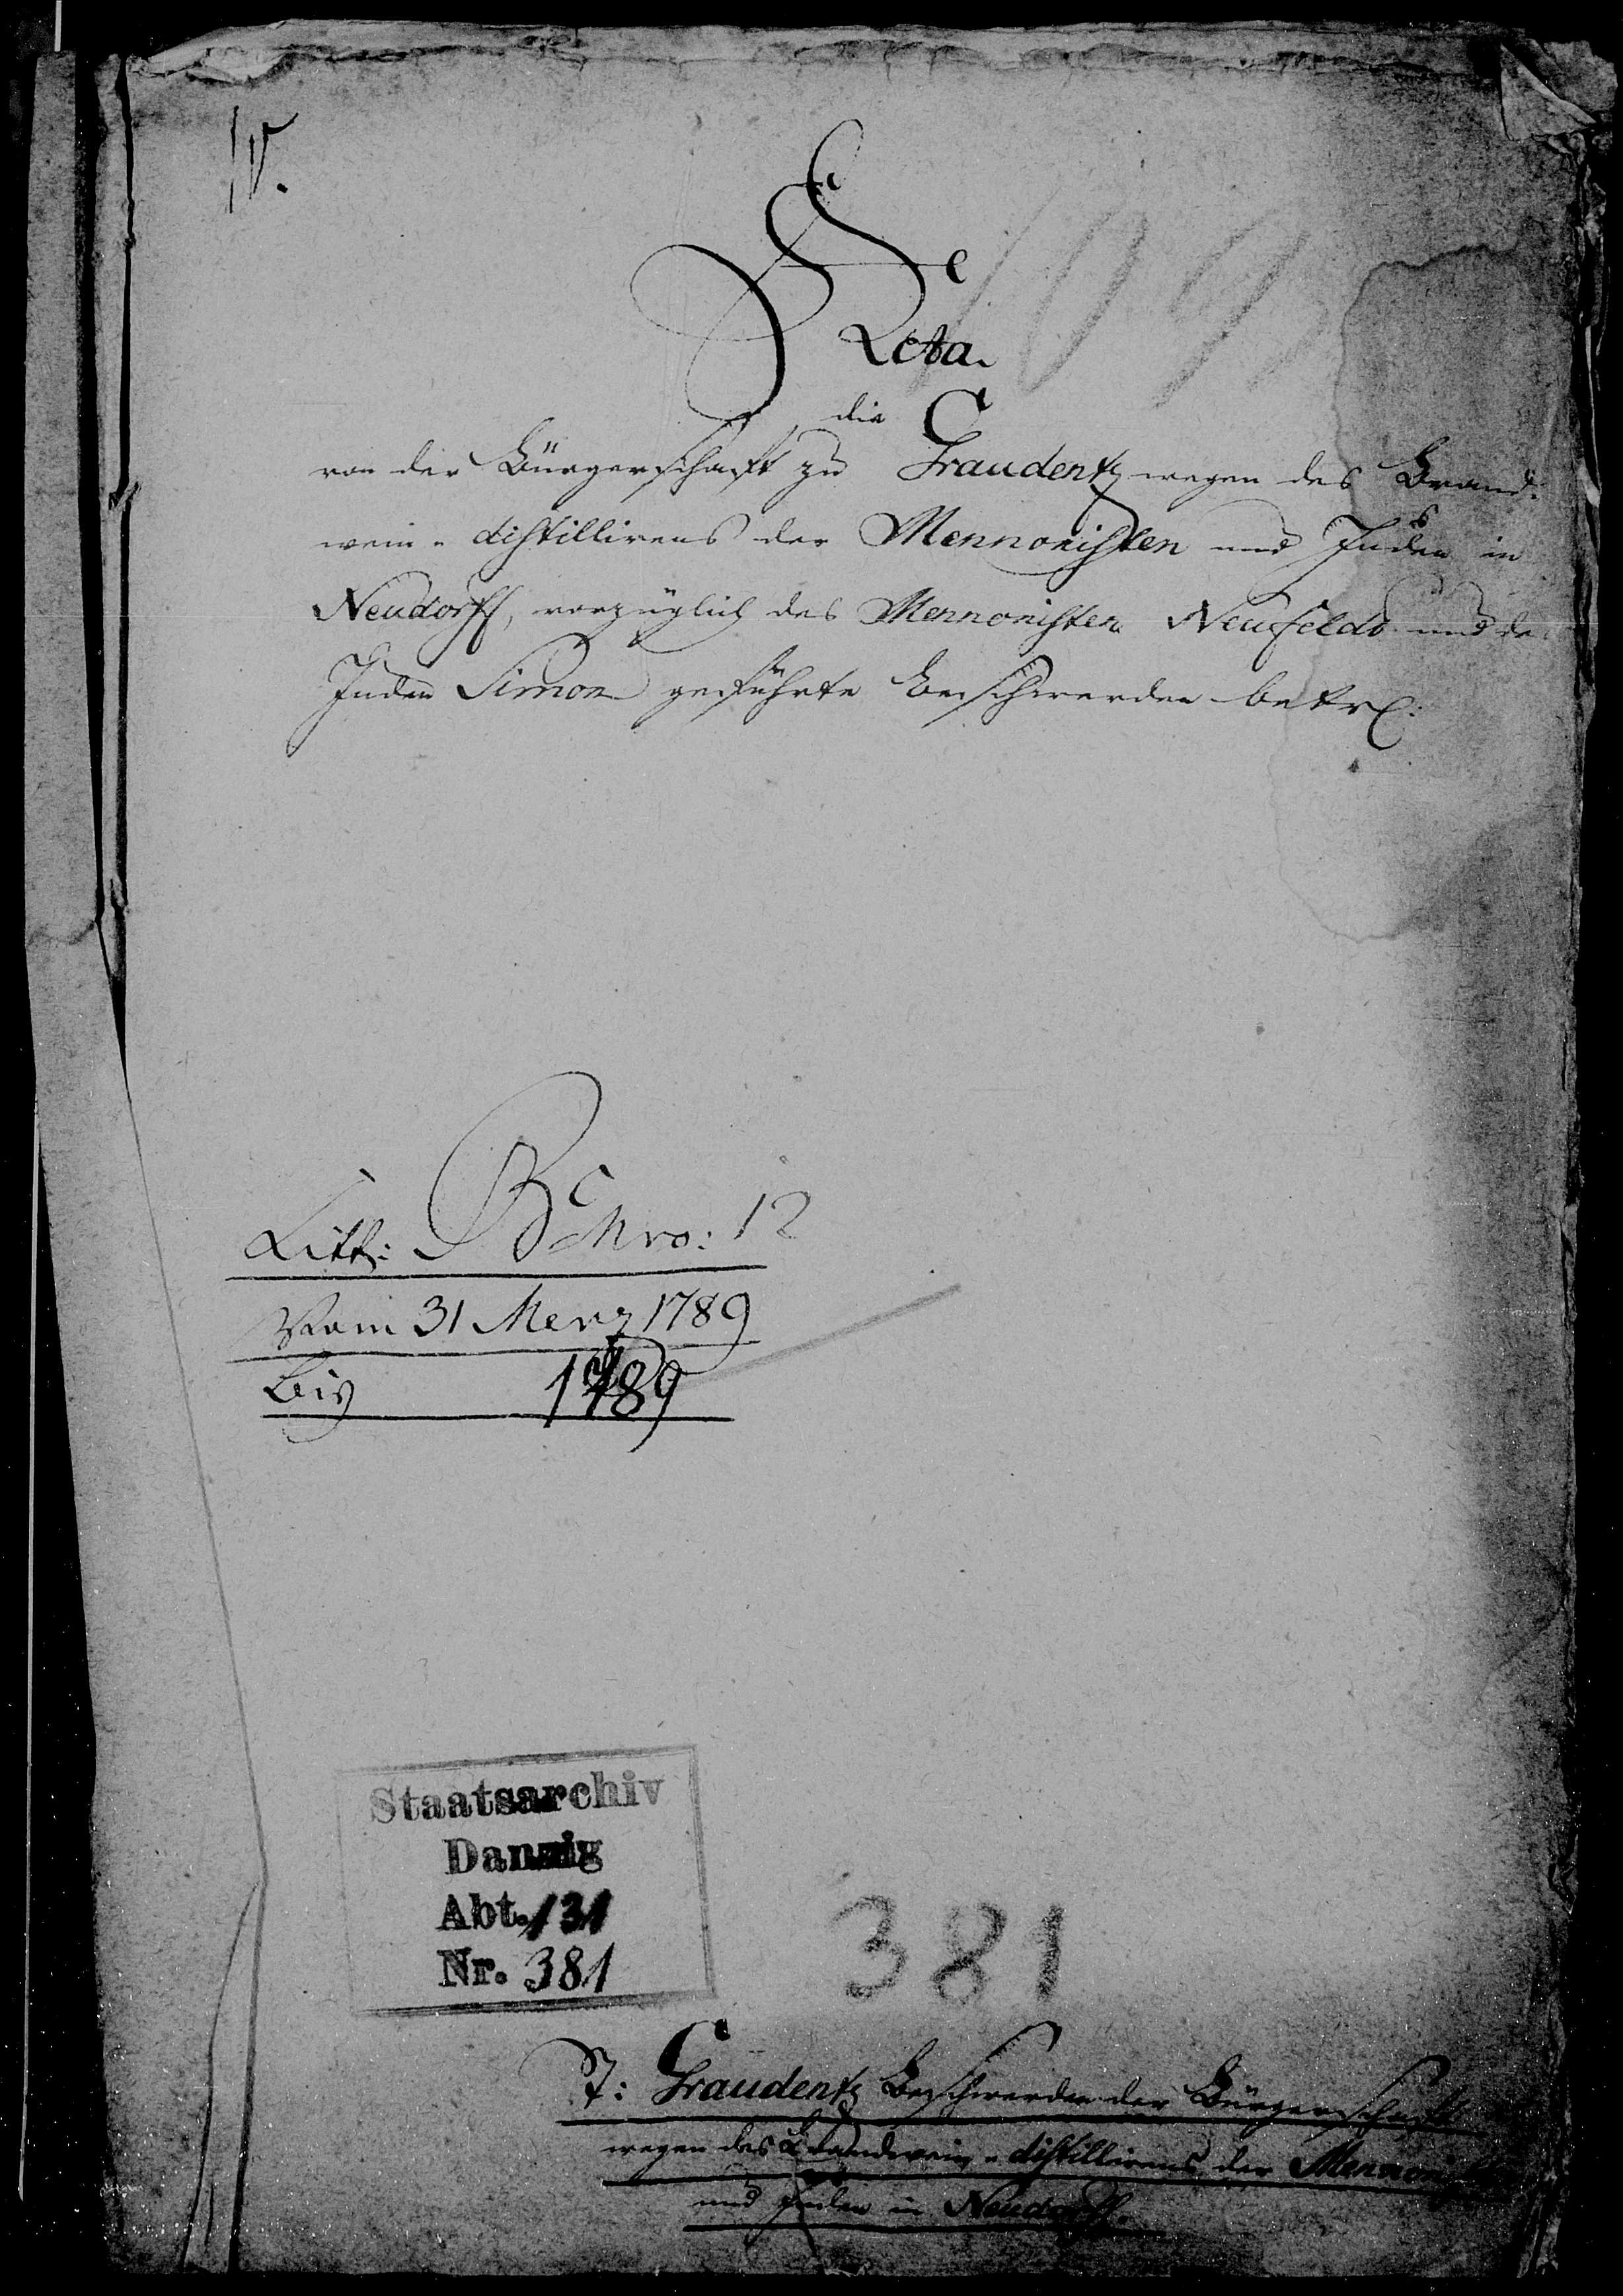 IV.
1093
Acta
die
von der Bürgerschafft zu Graudentz wegen des Brand-
wein-distillirens der Mennonisten und Juden in
Neudorff, vorzüglich des Mennonisten Neufeldt und de
Juden Simon geführte Beschwerden betr:
Litt: Nro: 12
Vom 31 Merz 1789
bis 1789
Staatsarchiv
Danzig
Abt. 131
Nr. 381
381
Graudentz Beschwerden der Bürgerschafft
wegen des Brandwein-distillirens der Mennonisten
und Juden in Neudorff.